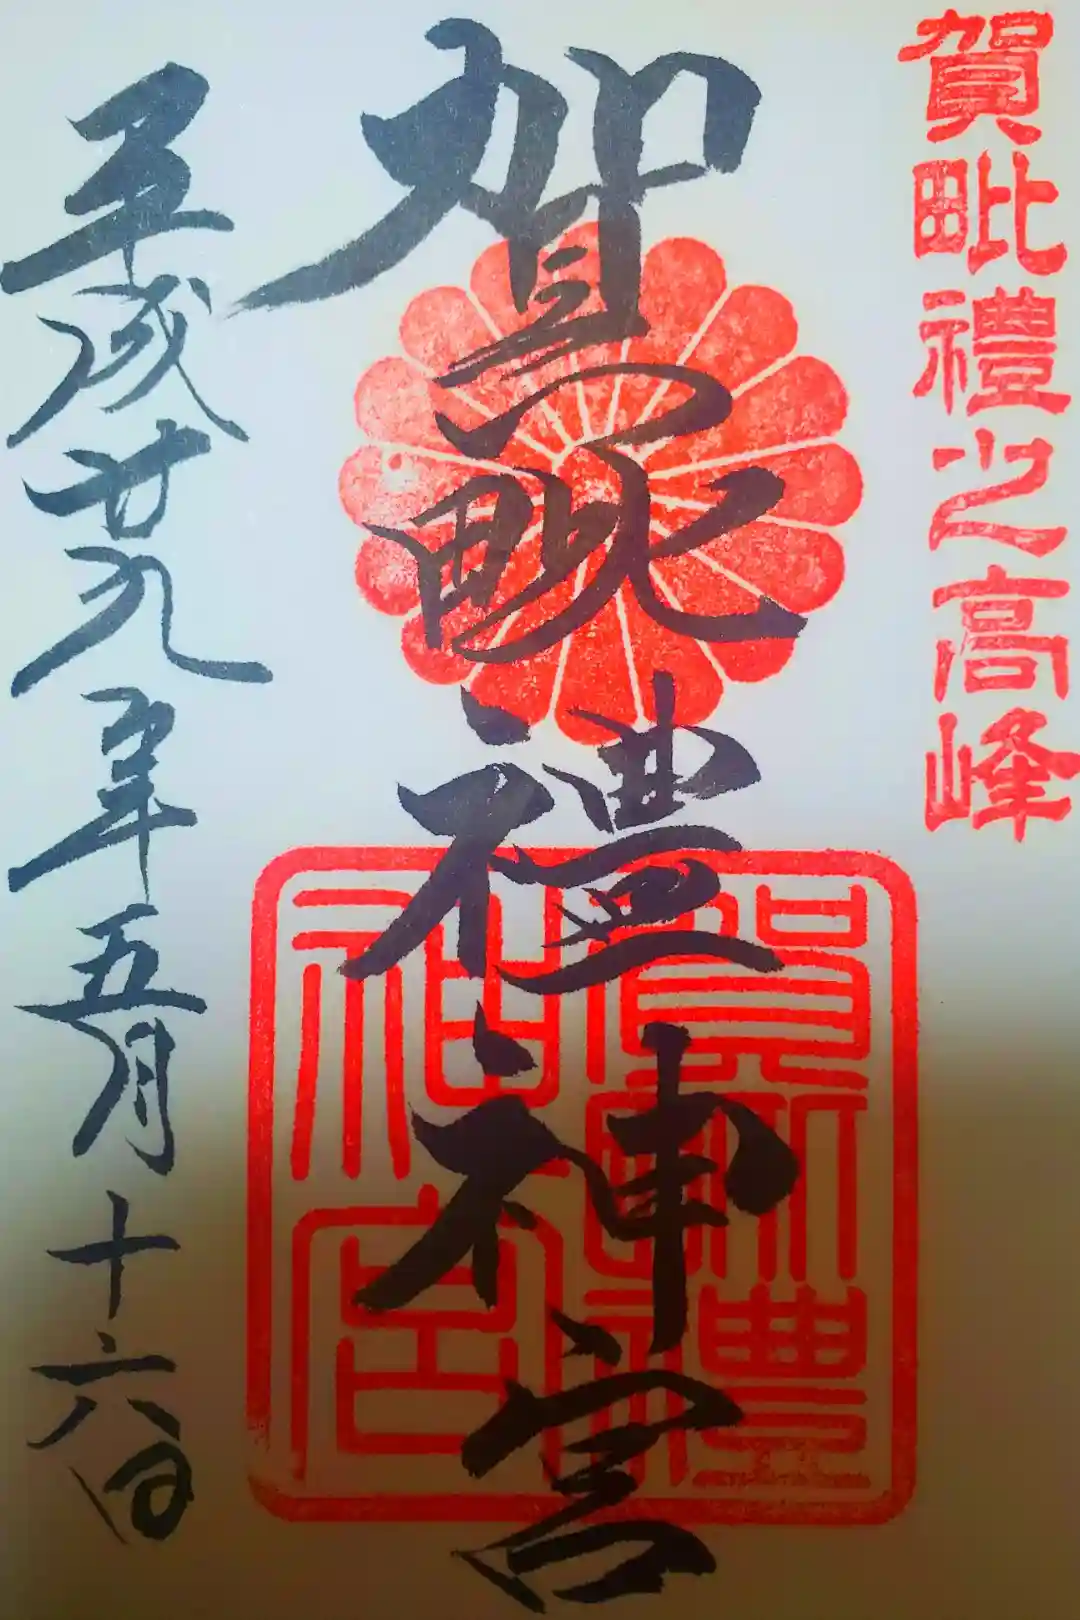 賀毗禮之高峰
賀毗禮神宮
賀毗禮神宮
平成廿九年五月十六日